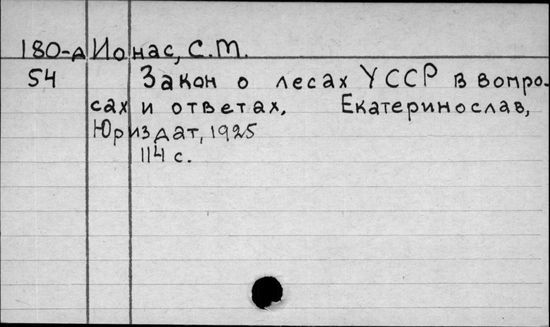 180-д Ионас, С.М.
54 Закон о лесах УССР в вопро-
сах и ответах. Екатеринослав,
Юриздат, 1925
114 с.